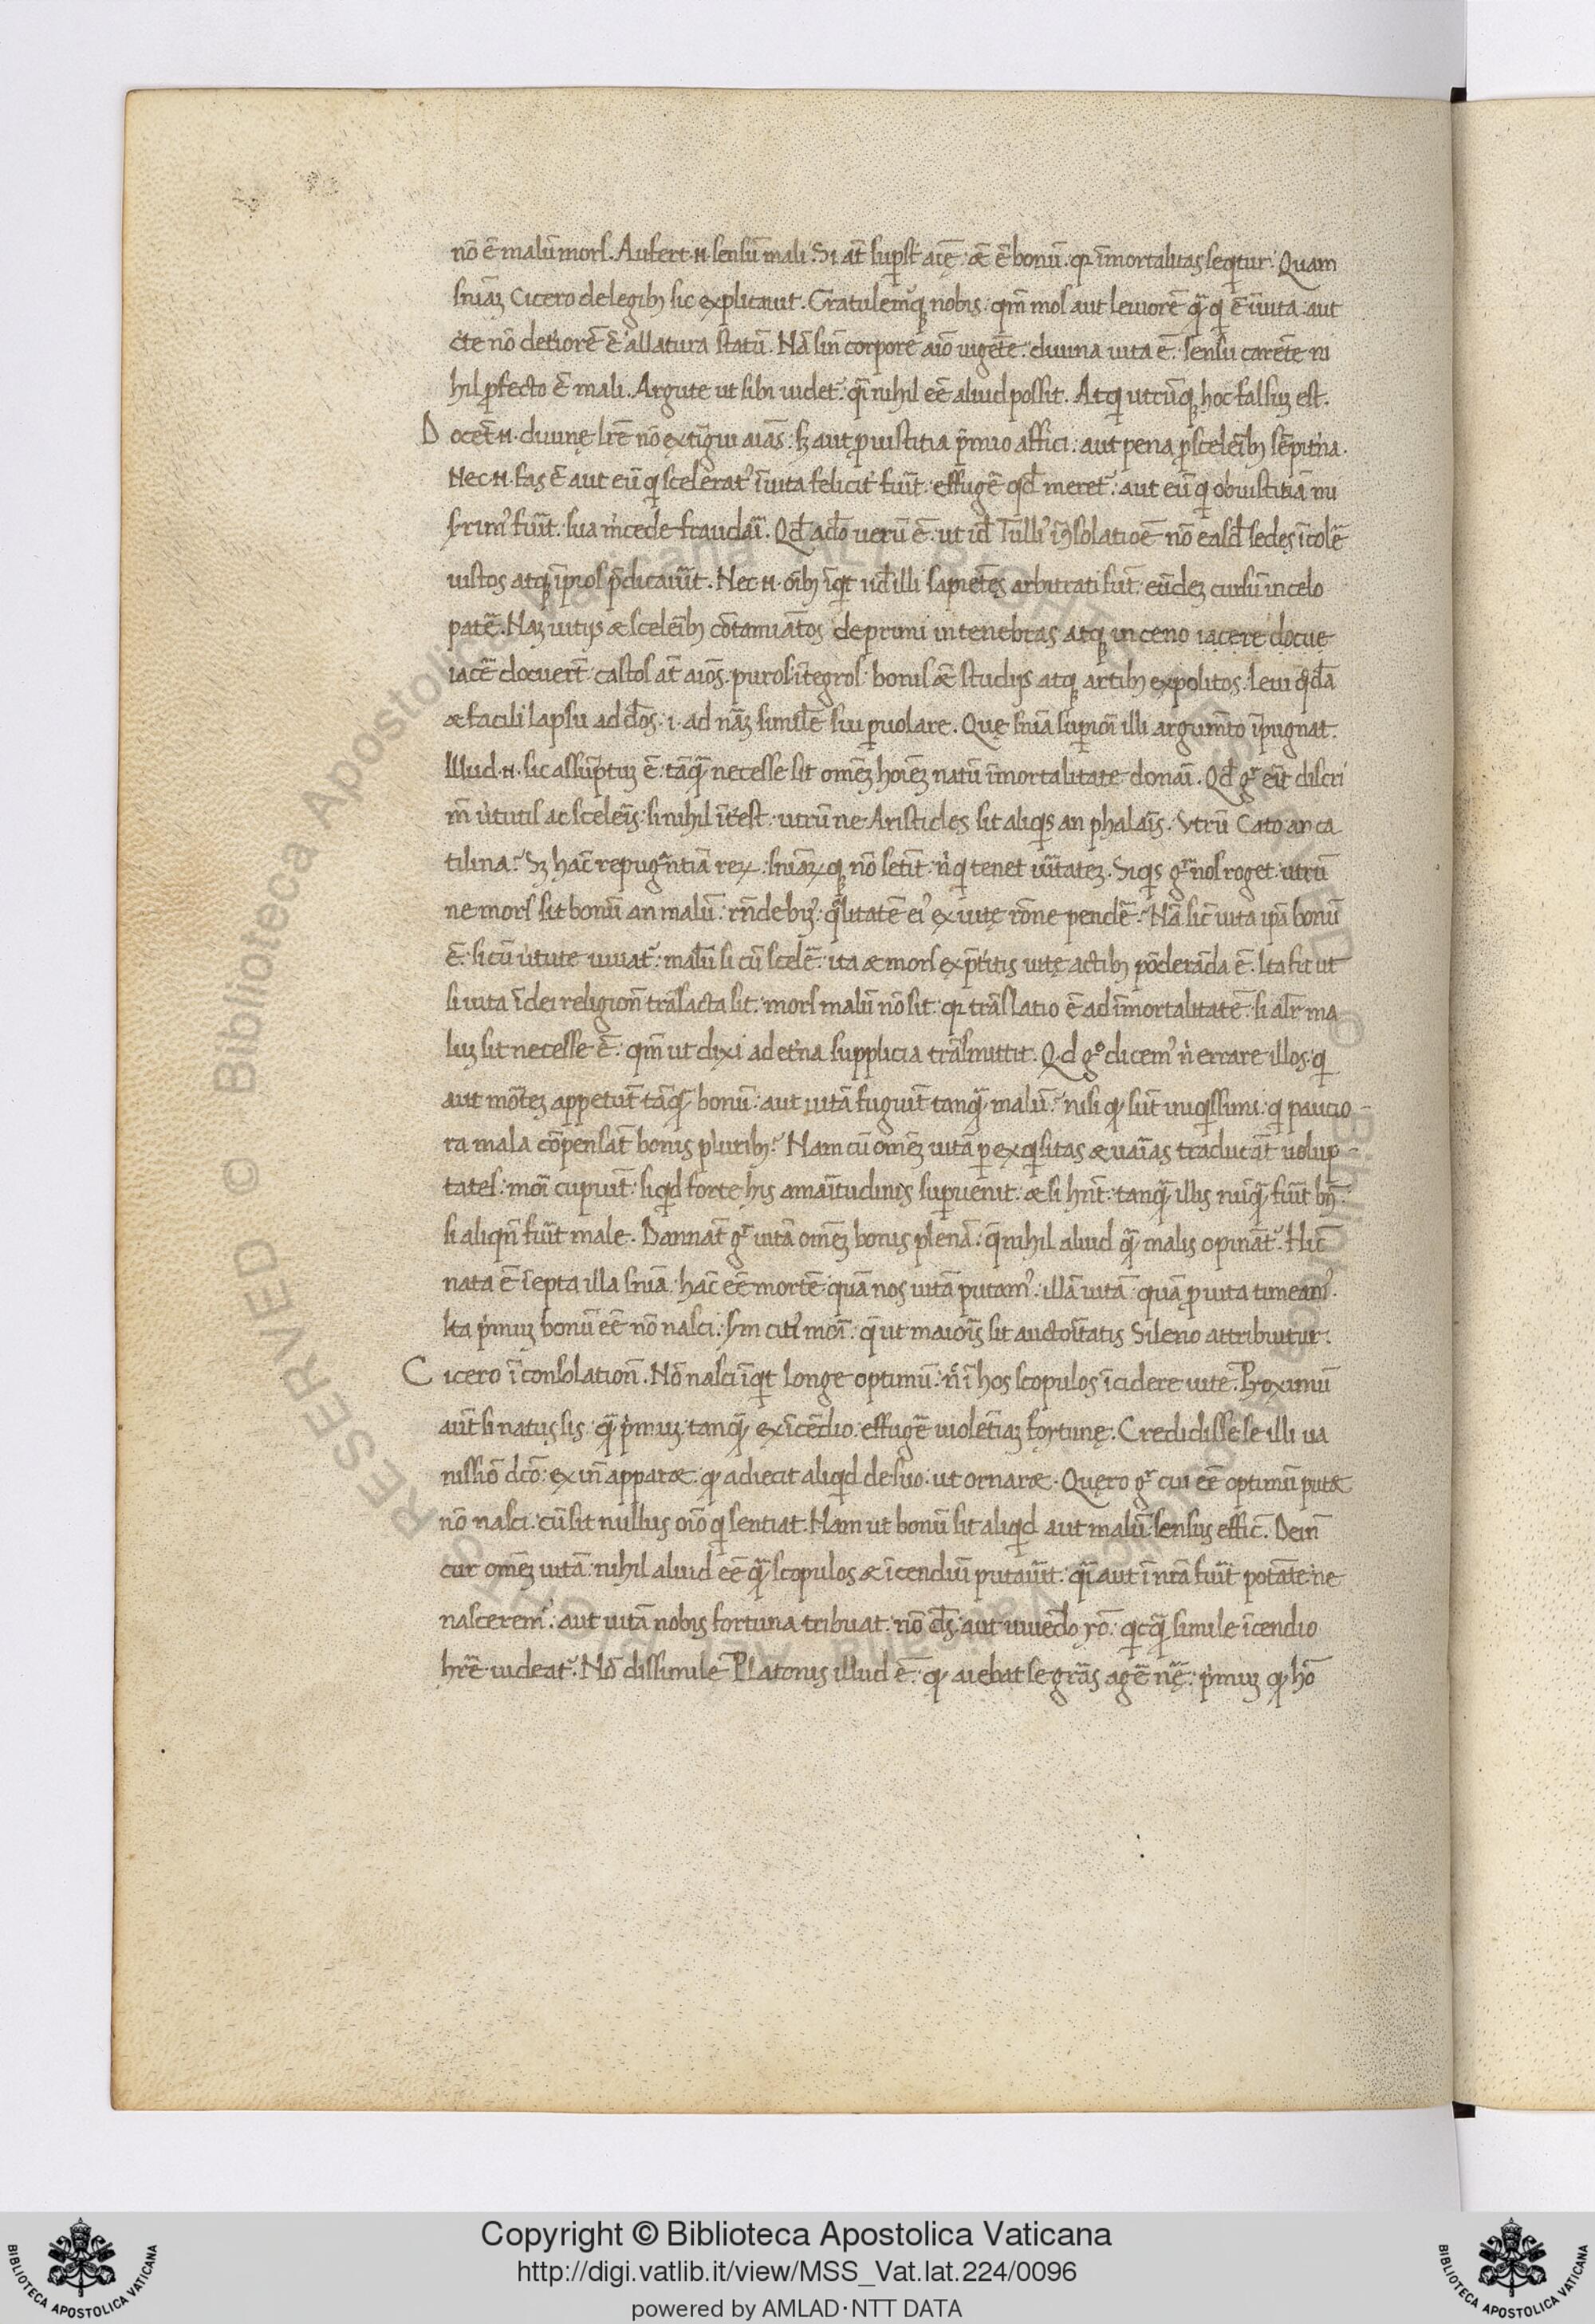 nō ē malū mors. Aufert .n. sensū mali. Si at̄ supst̄ aīę: æ ē bonū. qr īmortalitas seqitur. Quam
sniāz Cicero de legib; sic explicauit. Gratulemꝰq; nobis. qm̄ mos aut leuiorē q̄ q ē ī uita: aut
c̄te nō deteriorē ē allatura statū. Nā sin̄ corpore aīo uigēte: diuina uita ē. sensu carēte ni
hil pfecto ē mali. Argute ut sibi uidet᷑: q̄i nihil eē aliud possit. Atqi utrūq; hoc falsuz est.
Docēt .n. diuinę lr̄e nō extīgui aīas: sz aut p iustitia p̄mio affici: aut pena p sceleīb; sēpit̄na.
Nec .n. fas ē aut eū q scelerat᷑ ī uita felicit̄ fuīt: effugē qd̄ meret᷑: aut eū q ob iustitiā mi
srimꝰ fuīt: sua m̄cede fraudāi. Qd̄ adeō uerū ē. ut id̄ Tulliꝰ ī ꝯsolatioē nō easd̄ sedes īcolē
iustos atq; īpios p̄dicauīt. Nec .n. oīb; īqt ijd̄ illi sapiētęs arbitrati sūt. eūdez cursū in celo
patē. Naz uitijs æ sceleīb; cōtamiatos deprimi in tenebras atq; in ceno iacere docue
iacē docuerūt: castos at̄ aīos. puros ītegros: bonis æ studijs atq; artib; expolitos. leui qd̄ā
æ facili lapsu ad dōs .i. ad nāz simile sui puolare. Quę sniā supioī illi argumēto īpugnat.
Illud .n. sic assūptuz ē: tāq̄ necesse sit omēz hoīez natū īmortalitate donāi. Qd̄ gr̄ erit discri
m̄ uitutis ac sceleīs: si nihil īterest. utrū ne Aristides sit aliqis an phalaīs. Vtrū Cato an ca
tilina? Sz hāc repugntiā rerꝝ: sniāꝝq; nō sētit. n̄ q tenet uītatez. Siqis gr̄ nos roget. utrū
ne mors sit bonū an malū: rn̄debimꝰ: q̄litatē eiꝰ ex uitę rōne pendē. Nā sic̄ uita ipā bonū
ē: si cū uitute uiuat᷑: malū si cū scelē: ita æ mors ex p̄titis uitę actib; pōderāda ē. Ita fit ut
si uita ī dei religion̄ trāsacta sit. mors malū nō sit. qr trāslatio ē ad īmortalitatē. si alr̄ ma
luz sit necesse ē. qm̄ ut dixi ad et̄na supplicia trāsmittit. Qd gº dicemꝰ n̄ errare illos q
aut mōtez appetūt tāq̄ bonū: aut uitā fugiūt tanq̄ malū? nisi q sūt iniqissimi. q paucio
ra mala cōpensāt bonis plurib;? Nam cū omēz uitā p exqisitas æ uaīas traducāt uolup
tates: moī cupiūt. siqid forte his amaītudinis supuenit: æ si hn̄t. tanq̄ illis nūq̄ fuīt bn̄
si aliqn̄ fuīt male. Dannāt gr̄ uitā omēz bonis plenā: q̄ nihil aliud q̄ malis opinat᷑. Hic
nata ē īepta illa sniā: hāc eē mortē quā nos uitā putamꝰ: illā uitā quā p uita timeamꝰ.
Ita p̄muz bonū eē nō nasci: sm citiꝰ moī: q̄ ut maioīs sit auctoītatis Sileno attribuitur.
Cicero ī consolation̄. Nō nasci īqt longe optimū. n̄ ī hos scopulos īcidere uite. Proximū
aūt si natus sis: q̄ p̄muz tanq̄ ex īcēdio: effugē uiolētiaz fortunę. Credidisse se illi ua
nissiō dcō: ex in̄ apparæ. q adiecit aliqid de suo: ut ornaræ. Quęro gr̄ cui eē optimū putæ
nō nasci: cū sit nullus oīo q sentiat. Nam ut bonū sit aliqid aut malū sensus effic̄. Dein̄
cur omēz uitā: nihil aliud eē q̄ scopulos æ īcendiū putauīt: q̄i aut ī nrā fuīt potāte ne
nasceremꝰ: aut uitā nobis fortuna tribuat. nō ds̄: aut uiuēdo rō. qicq̄ simile īcendio
hrē uideat᷑. Nō dissimile Platonis illud ē: q aiebat se grās agē nę: p̄muz q hō